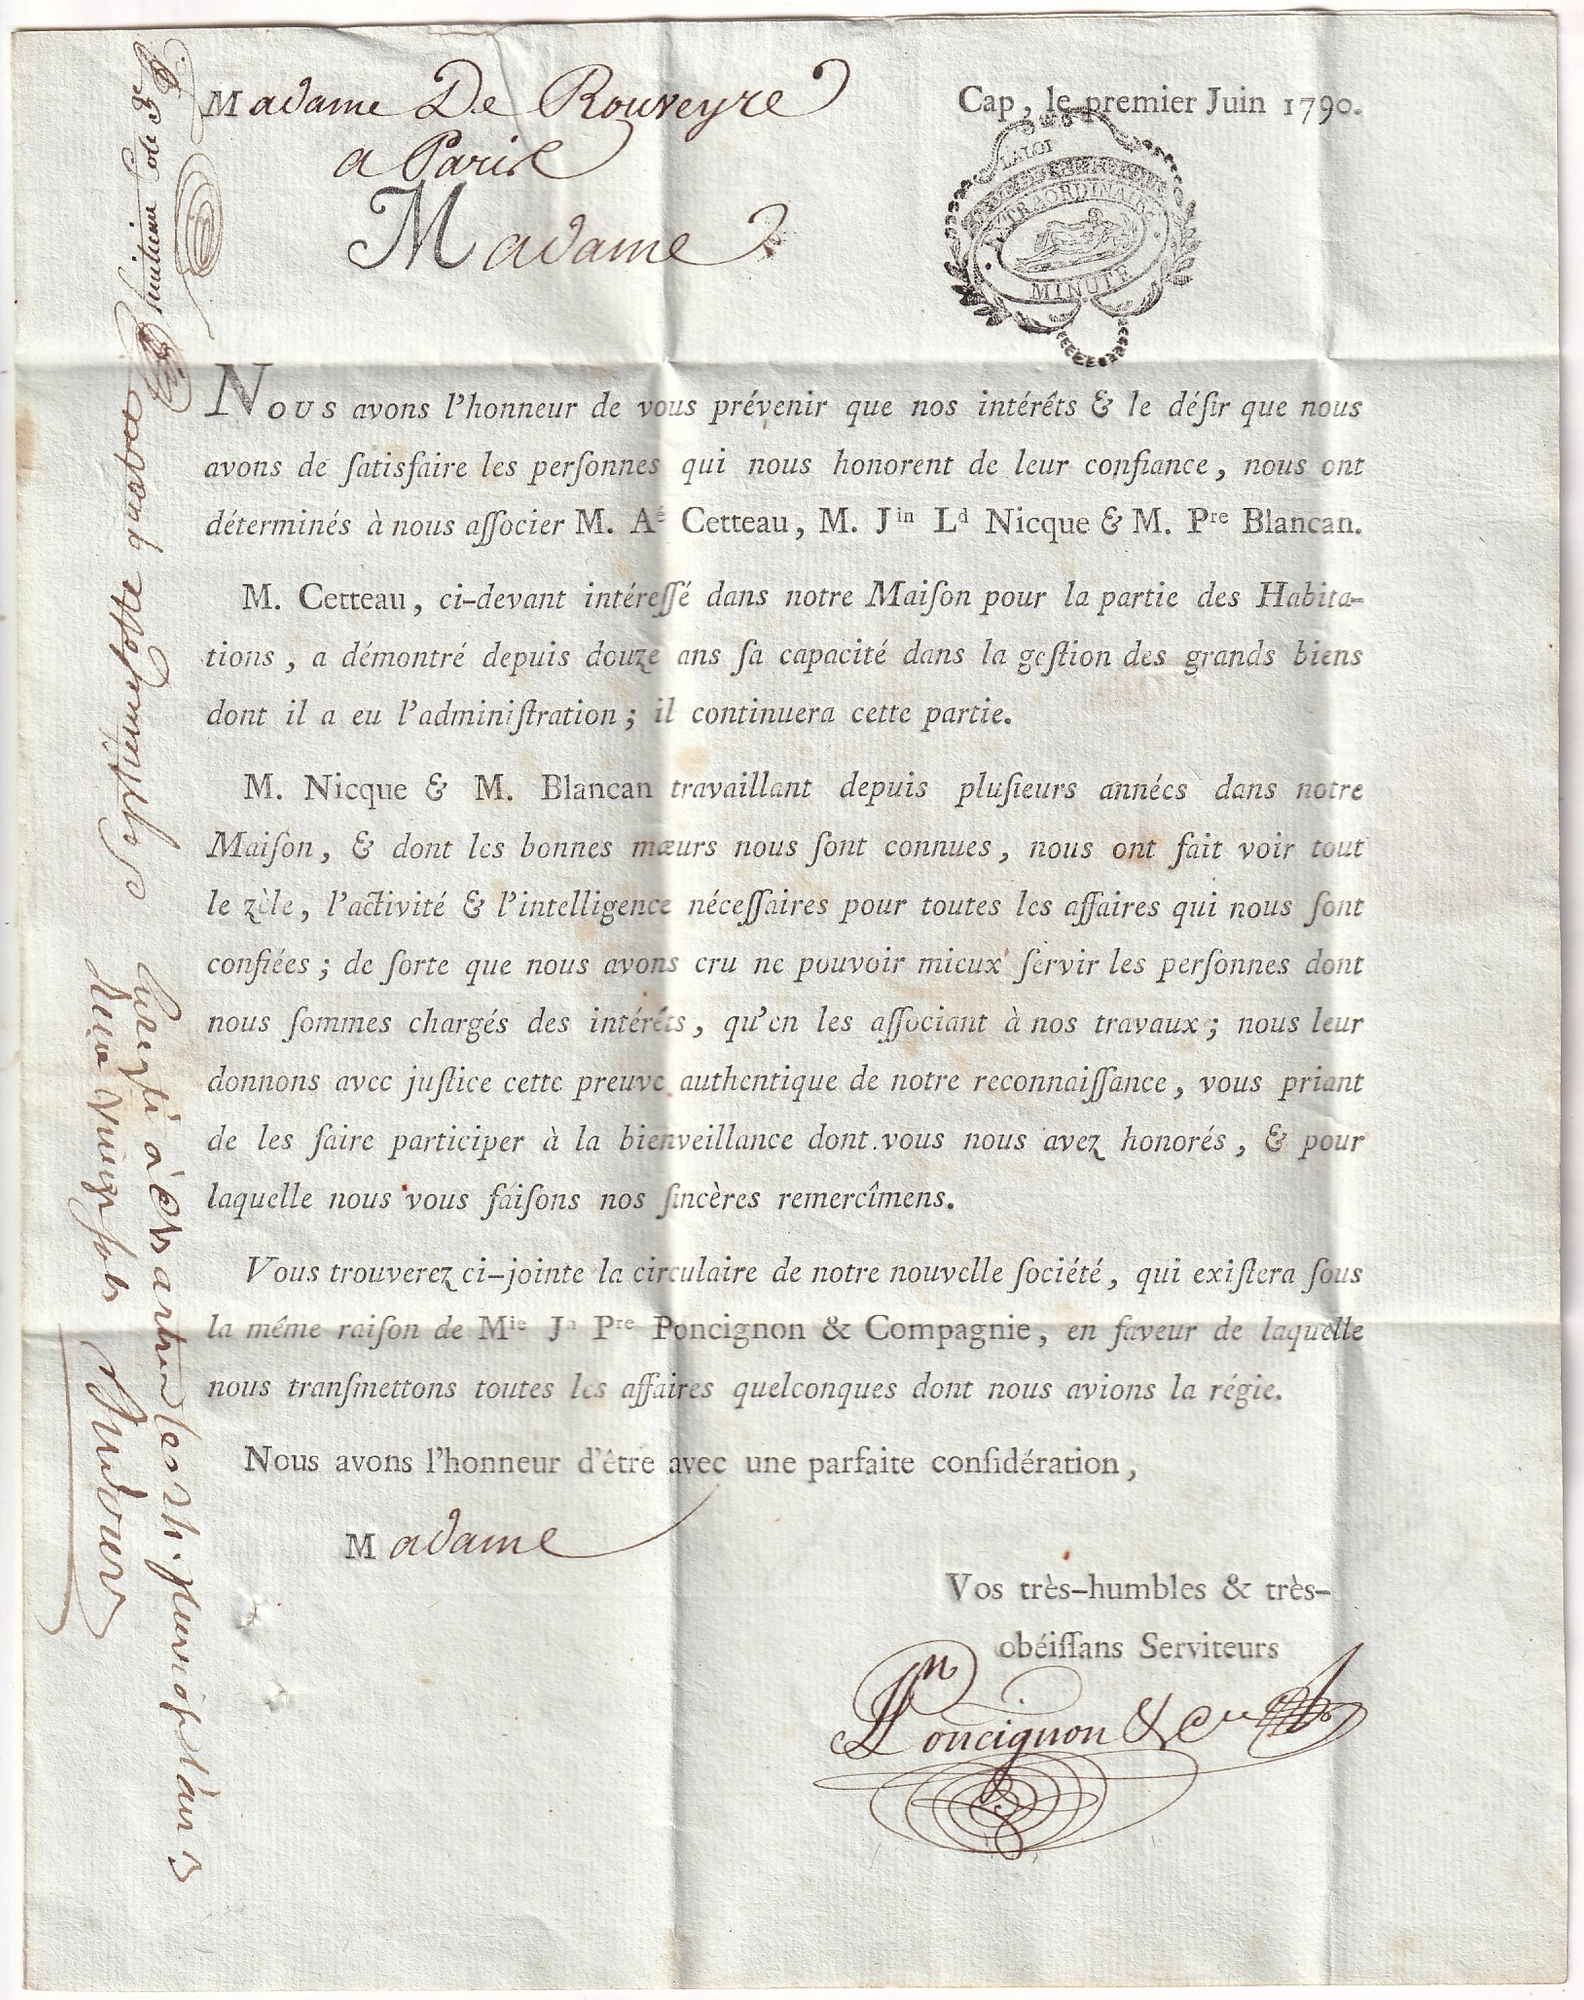 Madame De Rouveyre
a Paris
Cap, le premier Juin 1790.
LA LOI
EXTRAORDINAIRE
MINUTE
Madame
Nous avons l'honneur de vous prévenir que nos intérêts & le déſir que nous
avons de ſatisfaire les perſonnes qui nous honorent de leur confiance, nous ont
déterminés à nous aſſocier M. Aé Cetteau, M. Jin Ld Nicque & M. Pre Blancan.
M. Cetteau, ci-devant intéreſſé dans notre Maiſon pour la partie des Habita-
tions, a démontré depuis douze ans ſa capacité dans la geſtion des grands biens
dont il a eu l'adminiſtration; il continuera cette partie.
M. Nicque & M. Blancan travaillant depuis pluſieurs années dans notre
Maiſon, & dont les bonnes mœurs nous ſont connues, nous ont fait voir tout
le zèle, l'activité & l'intelligence néceſſaires pour toutes les affaires qui nous ſont
confiées; de ſorte que nous avons cru ne pouvoir mieux ſervir les perſonnes dont
nous ſommes chargés des intérêts, qu'en les aſſociant à nos travaux; nous leur
donnons avec juſtice cette preuve authentique de notre reconnaiſſance, vous priant
de les faire participer à la bienveillance dont vous nous avez honorés, & pour
laquelle nous vous faiſons nos ſincères remercîmens.
Vous trouverez ci-jointe la circulaire de notre nouvelle ſociété, qui exiſtera ſous
la même raiſon de Mie Jn Pre Poncignon & Compagnie, en faveur de laquelle
nous tranſmettons toutes les affaires quelconques dont nous avions la régie.
Nous avons l'honneur d'être avec une parfaite conſidération,
Madame
Vos très-humbles & très-
obéiſſans Serviteurs
Poncignon & Cie
huitieme
Septieme quatre
à